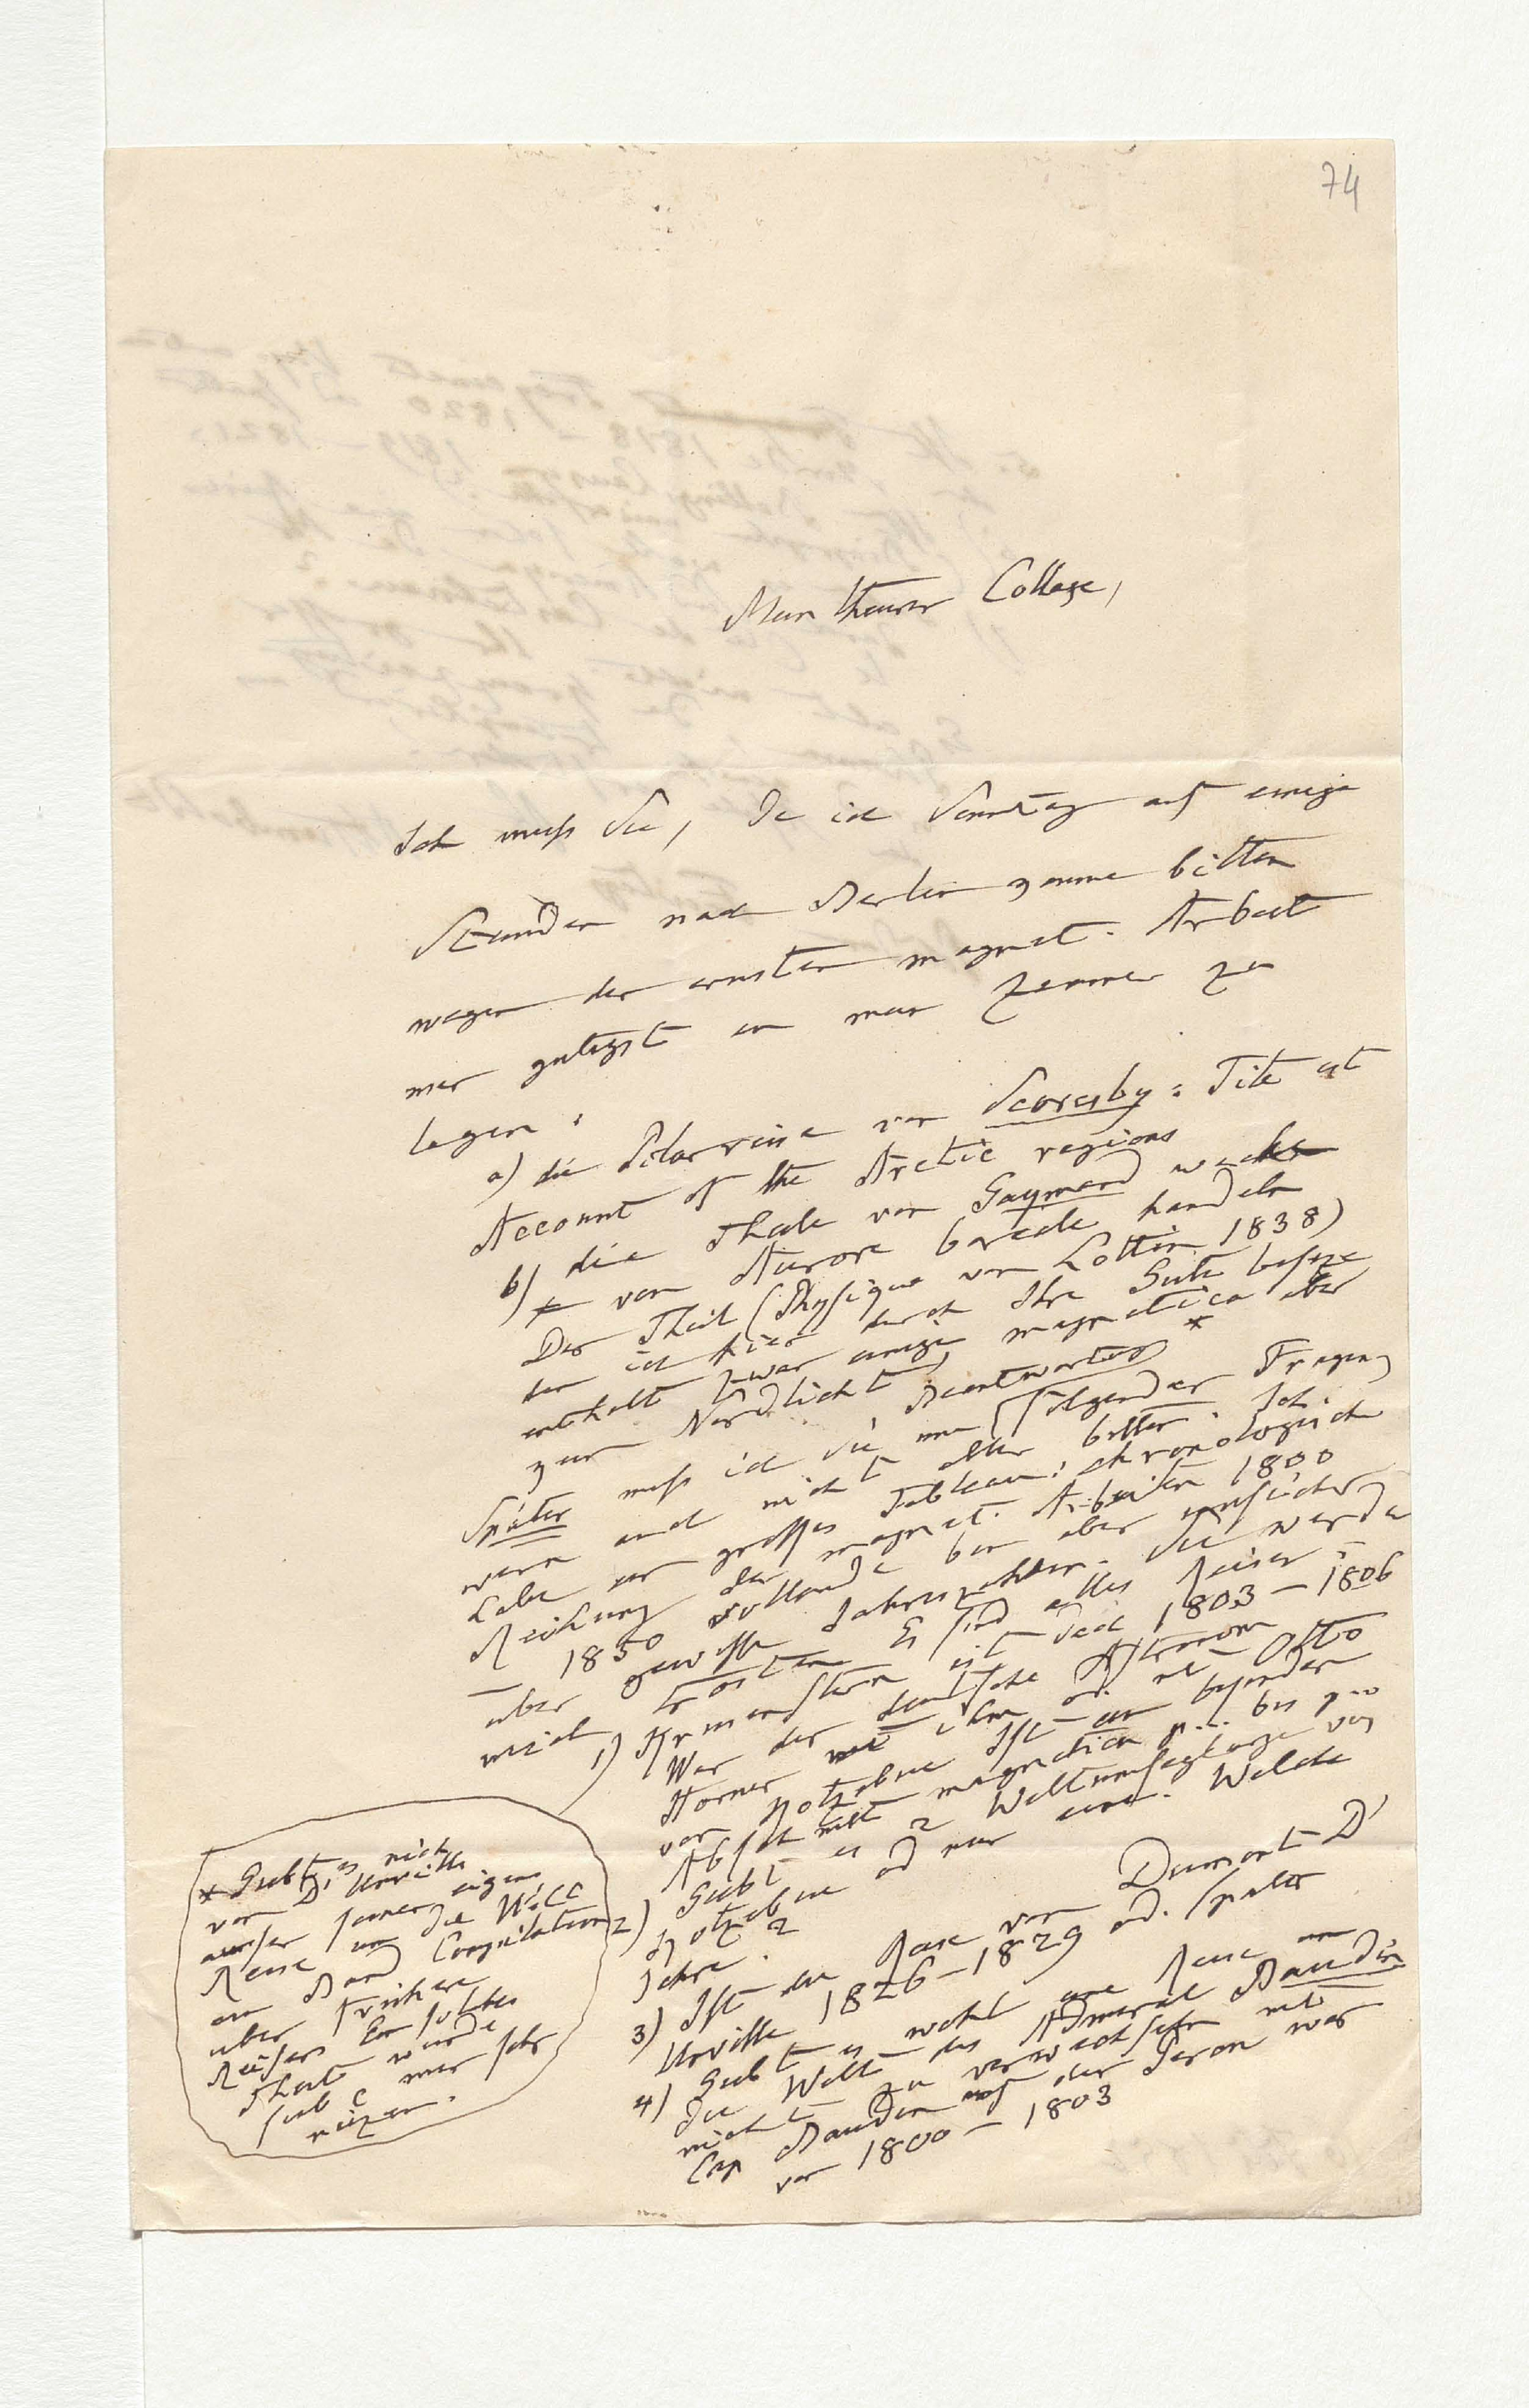 74
Mein theurer College,
Ich muß Sie, da ich Sonntag auf einige
Stunden nach Berlin komme bitten
wegen der ernsten magnet. Arbeit
mir gütigst in mein Zimmer zu
legen:
a) die Polarreise von Scoresby: Titel ist
Account of the Arctic regions
b) die Theile von Gaymard welche
von Aurore boreale handeln
Der Theil (Physique von Lottin 1838)
den ich hier durch Ihre Güte besize
enthält zwar einige magnetica aber
kein Nordlicht
Später muß ich Sie um Beantwortung * folgender Fragen,
wenn auch nicht aller bitten. Ich
habe ein großes Tableau: chronologische
Reihung der magnet. Arbeiten 1800
– 1850 vollendet bin aber unsicher
über gewisse Jahreszahlen. Sie werden
mich trösten. Es sind alles Reisen:
1) Krusenstern ist doch 1803–1806
War der deutsche Astronom
Horner mit ihm od. mit Otto
von Kotzebue Ist ein besonderer
Abschnitt magnetica bei
2) Giebt es 2 Weltumseglungen von
Kotzebue od nur eine. Welche
Jahre?
3) Ist die Reise von Dumont D'
Urville 1826–1829 od. später
4) Giebt es wohl eine Reise um
die Welt des Admiral Baudin
nicht zu verwechseln mit
Cap Baudin auf der Peron war
von 1800–1803
* Giebt es nicht
von D'Urville
außer seiner eigenen
Reise um die Welt
ein Band Compilation
über frühere
Reisen Ein solcher
Theil würde
mir sehr
nüzen.